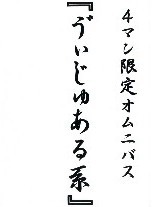 4マン限定オムニバス
『ゔぃじゅある系』